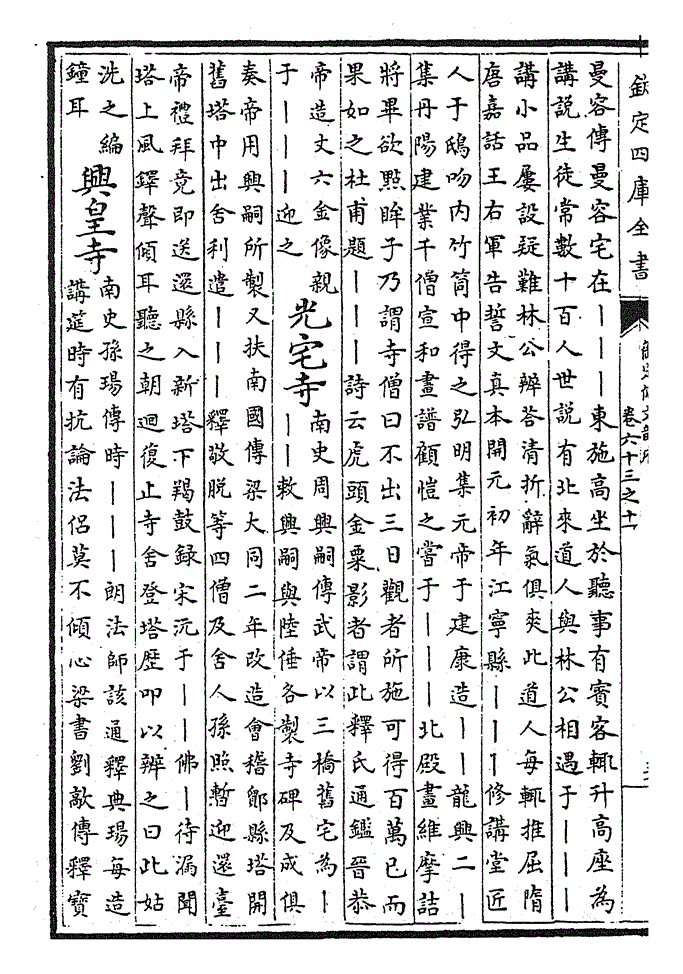 欽定四庫全書
御定佩文韻府
卷六十三之十一
曼容傳曼容宅在｜｜｜東施高坐於聽事有賓客輒升高座為
講說生徒常數十百人世説有北來道人與林公相遇于｜｜｜
講小品屢設疑難林公辯答清析辭氣俱爽此道人每輒推屈隋
唐嘉話王右軍告誓文真本開元初年江寧縣｜｜｜修講堂匠
人于鴟吻内竹筒中得之弘明集元帝于建康造｜｜龍興二｜
集丹陽建業千僧宣和畫譜顧愷之嘗于｜｜｜北殿畫維摩詰
將畢欲點眸子乃謂寺僧曰不出三日觀者所施可得百萬已而
果如之杜甫題｜｜｜詩云虎頭金粟影者謂此釋氏通鑑晉恭
帝造丈六金像親
于｜｜｜迎之
光宅寺
南史周興嗣傳武帝以三橋舊宅為｜
｜｜敕興嗣與陸倕各製寺碑及成俱
奏帝用興嗣所製又扶南國傳梁大同二年改造會稽鄮縣塔開
舊塔中出舍利遣｜｜｜釋敬脱等四僧及舍人孫照暫迎還臺
帝禮拜竟即送還縣入新塔下羯鼓録宋沇于｜｜佛｜待漏聞
塔上風鐸聲傾耳聽之朝迴復止寺舍登塔歴叩以辨之曰此姑
洗之編
鐘耳
興皇寺
南史孫瑒傳時｜｜｜朗法師該通釋典瑒每造
講筵時有抗論法侣莫不傾心梁書劉歊傳釋寶